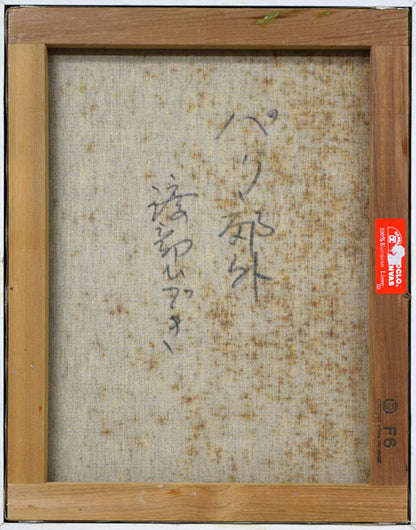 パリ郊外
渡部ひでき
OCLO.
NVAS
100% European Linen
F6